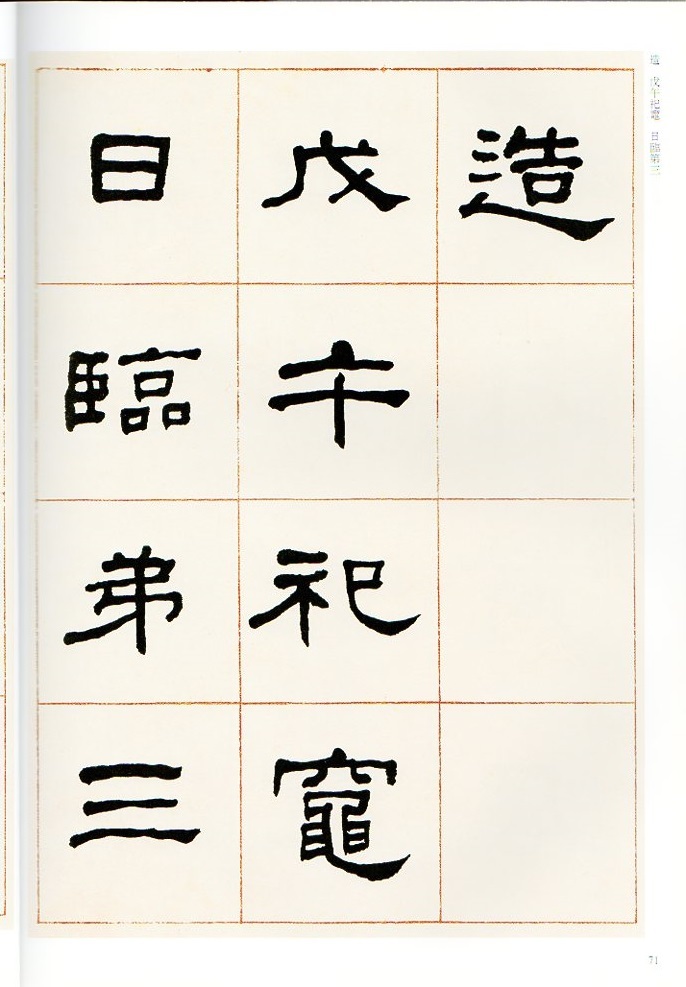 造
戊午祀竈
日臨弟三
造 戊午祀竈 日臨第三
71